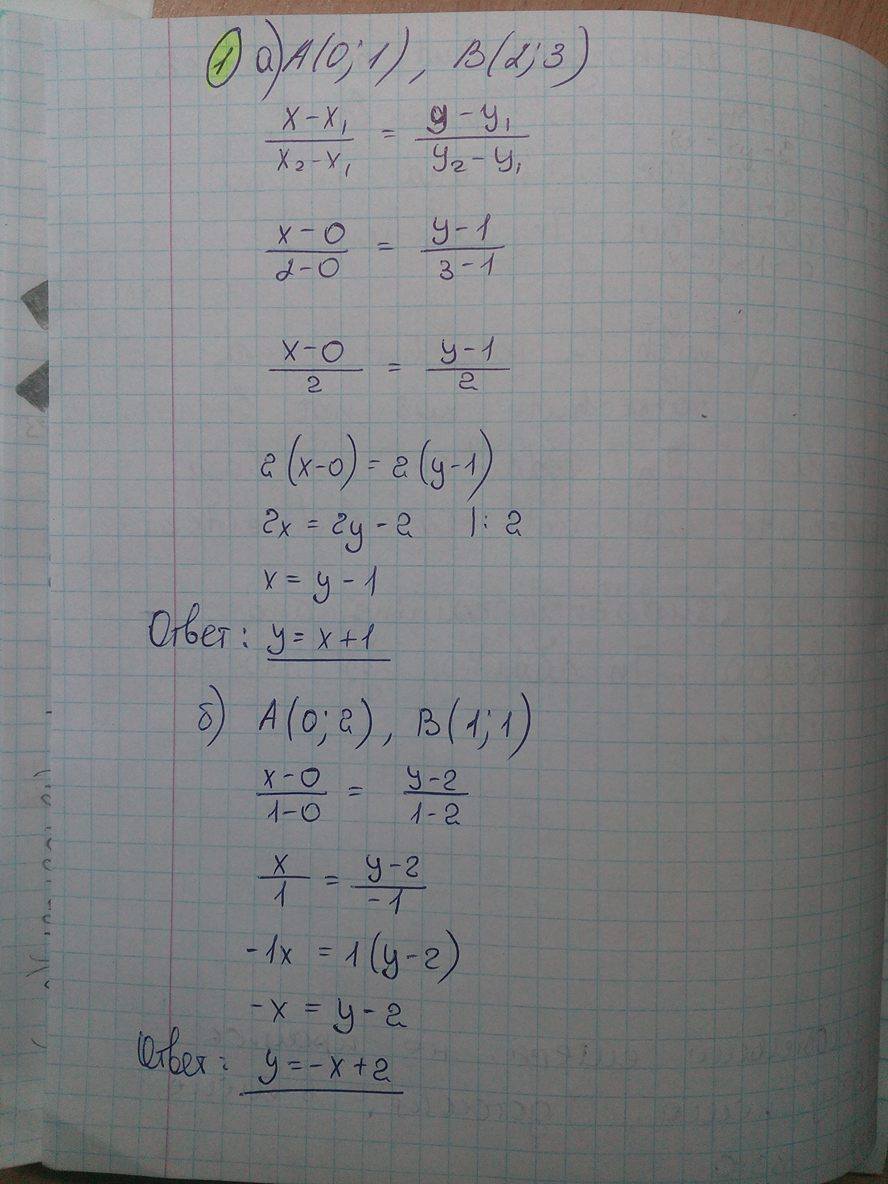 1 а) A(0; 1), B(2; 3)
x - x₁ / x₂ - x₁ = y - y₁ / y₂ - y₁
x - 0 / 2 - 0 = y - 1 / 3 - 1
x - 0 / 2 = y - 1 / 2
2(x-0) = 2(y-1)
2x = 2y - 2 |: 2
x = y - 1
Ответ: y = x + 1
б) A(0; 2), B(1; 1)
x - 0 / 1 - 0 = y - 2 / 1 - 2
x / 1 = y - 2 / -1
-1x = 1(y-2)
-x = y - 2
Ответ: y = -x + 2